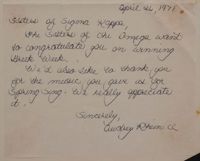 April 26, 1971
Sisters of Sigma Kappa,
The Sisters of Chi Omega want
to congratulate you on winning
Greek Week.
We'd also like to thank you
for the music you gave us for
Spring Sing. We really appreciate
it.
Sincerely,
Audrey